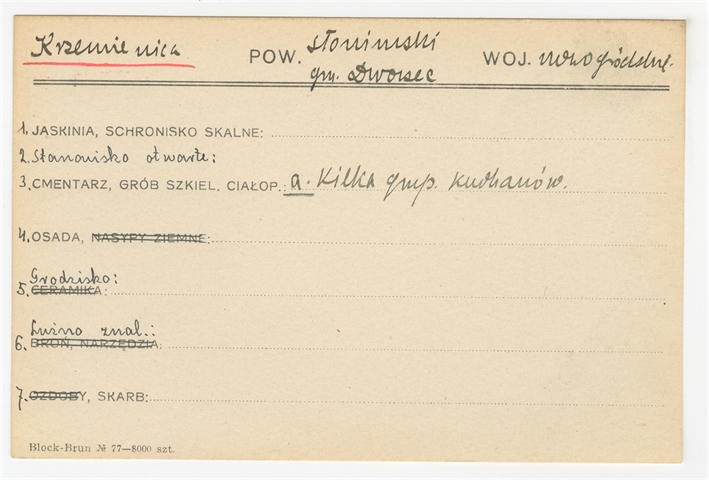 Krzemienica POW. słonimski WOJ. nowogródzkie.
gm. Dworzec
1. JASKINIA, SCHRONISKO SKALNE:
2. Stanowisko otwarte:
3. CMENTARZ, GRÓB SZKIEL. CIAŁOP.: a. Kilka grup. kurhanów.
4. OSADA, NASYPY ZIEMNE:
Grodzisko:
5. CERAMIKA:
Luźno znal.:
6. BROŃ, NARZĘDZIA:
7. OZDOBY, SKARB:
Block-Brun № 77—8000 szt.